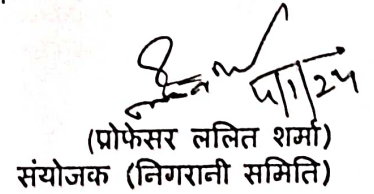 (प्रोफेसर ललित शर्मा)
संयोजक (निगरानी समिति)